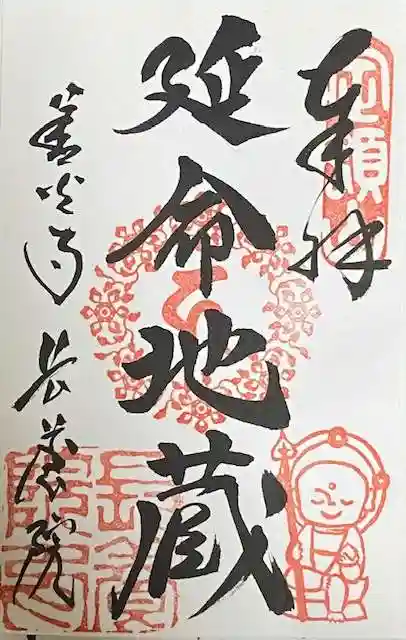 奉拝
延命地蔵
善光寺 長養院